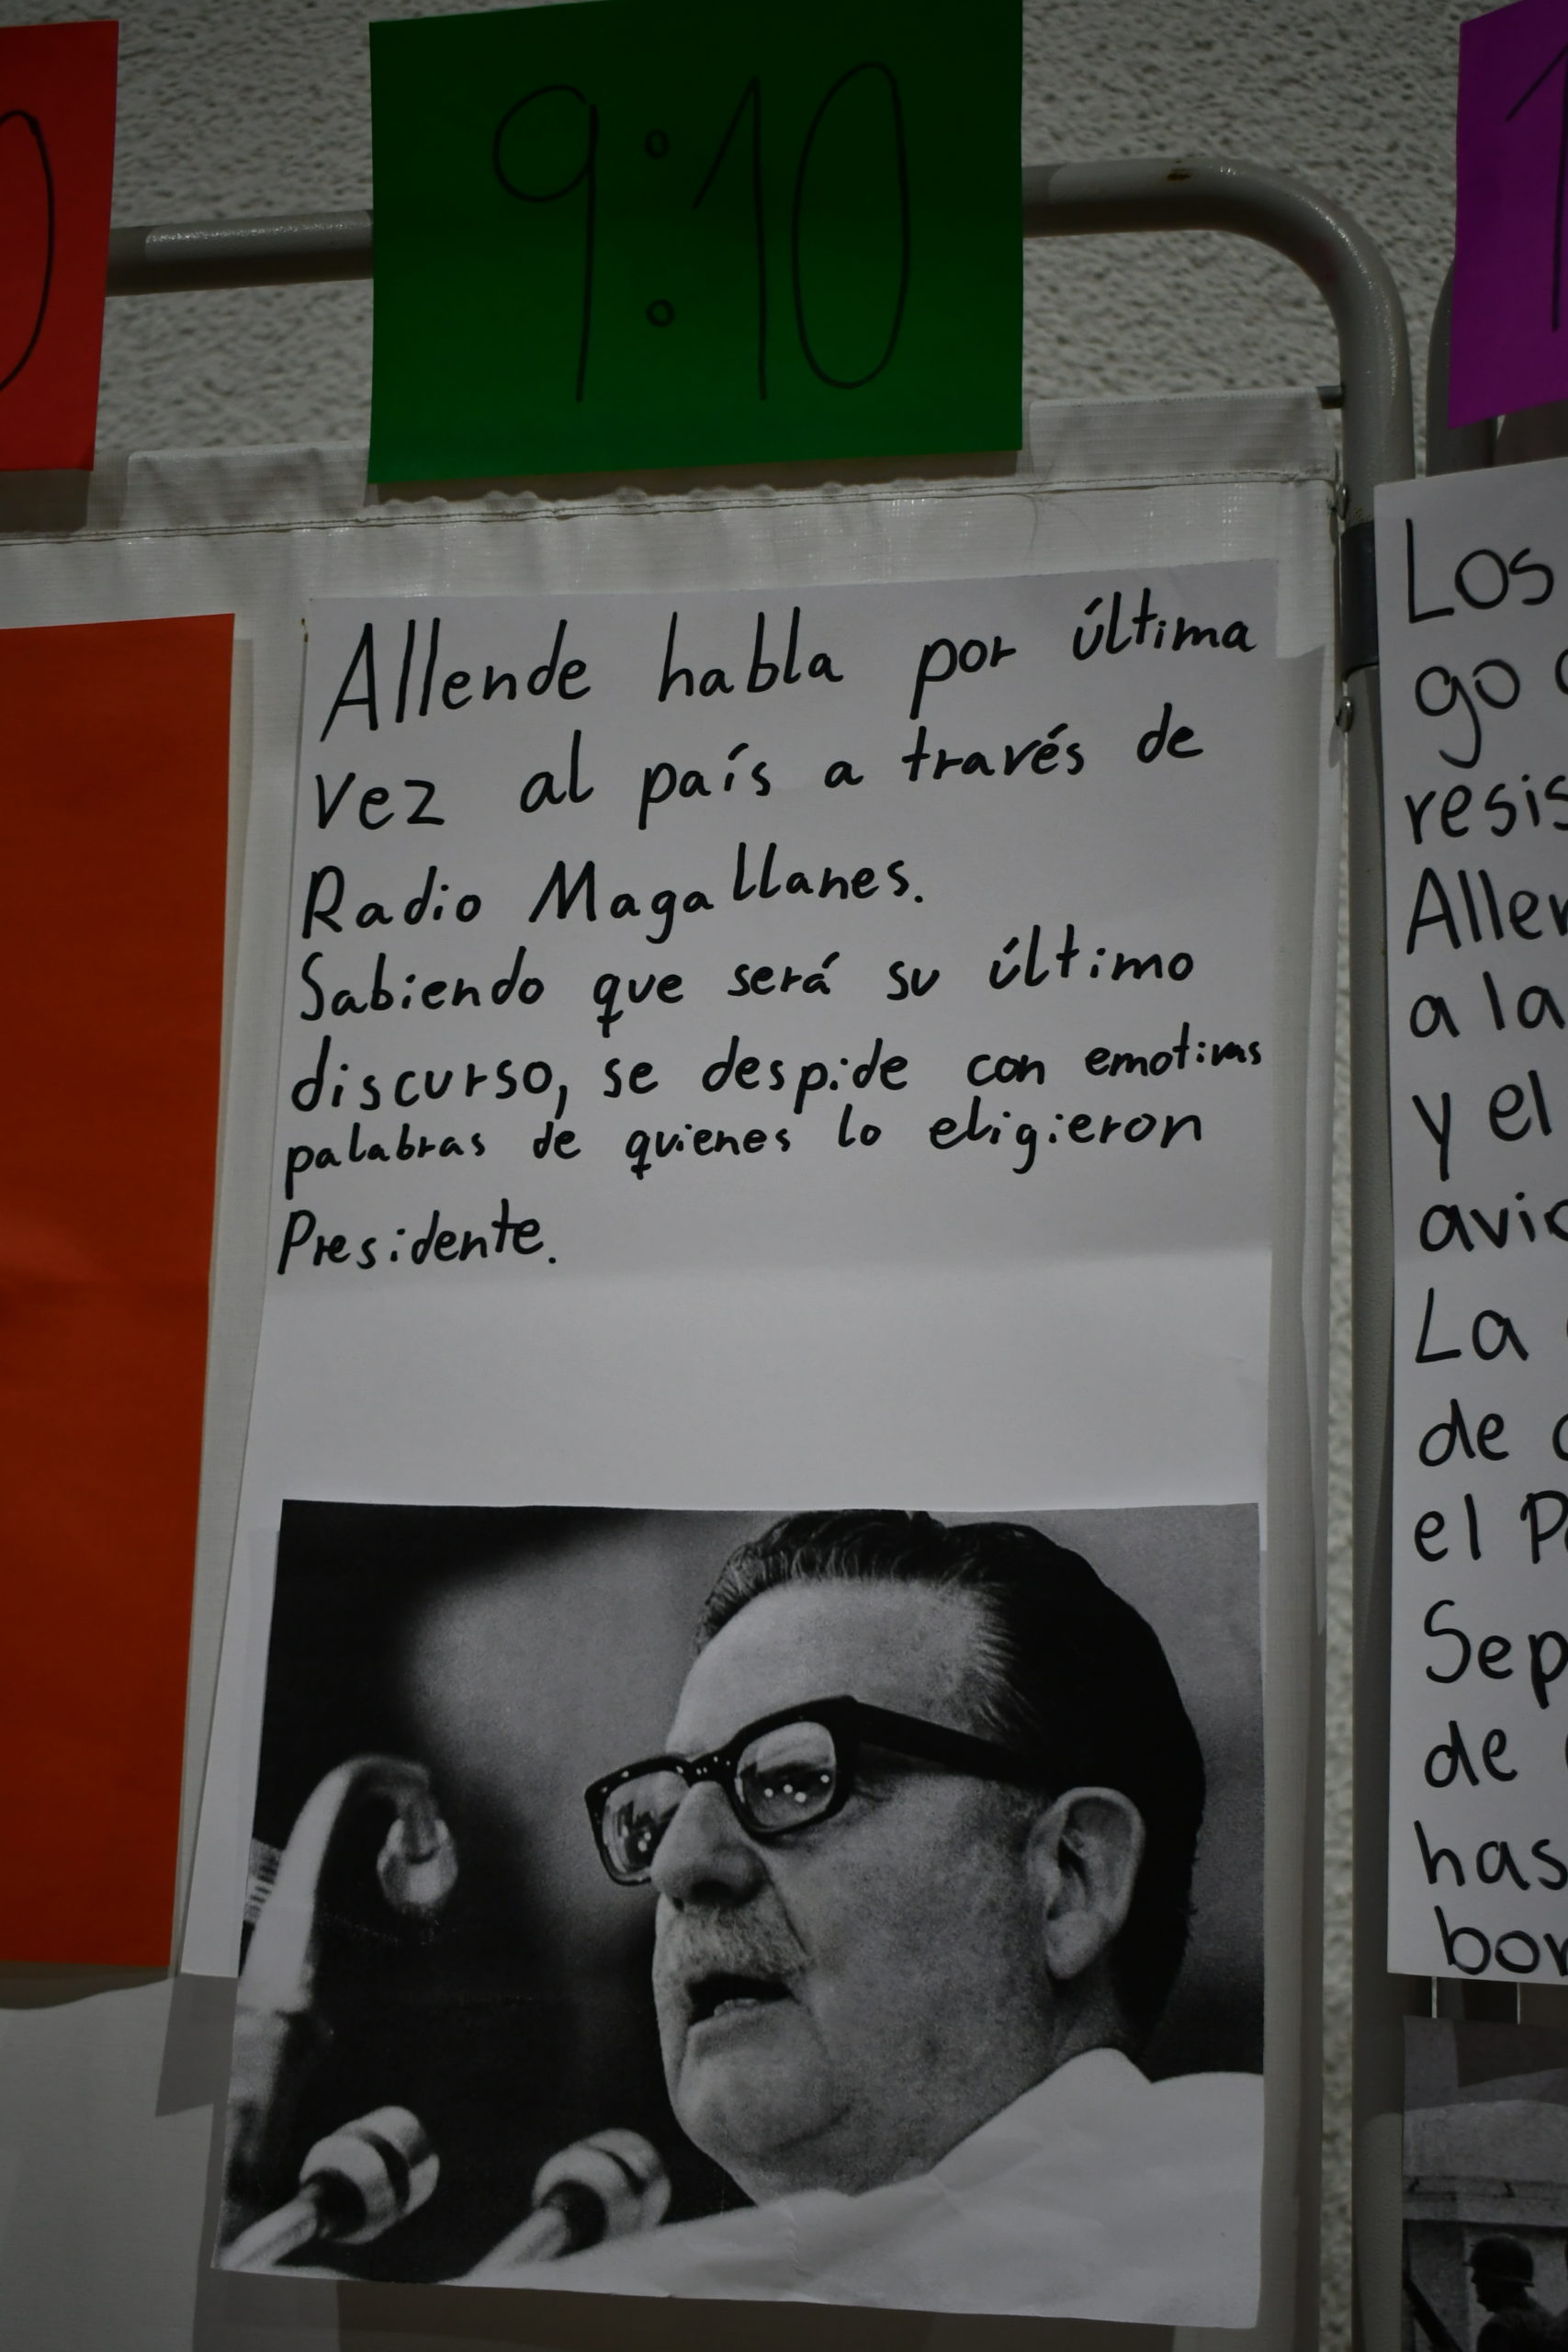 9:10
Allende habla por última
vez al país a través de
Radio Magallanes.
Sabiendo que será su último
discurso, se despide con emotivas
palabras de quienes lo eligieron
Presidente.
Los
go
resis
Allen
a la
y el
avio
La
de
el P
Sep
de
has
bor